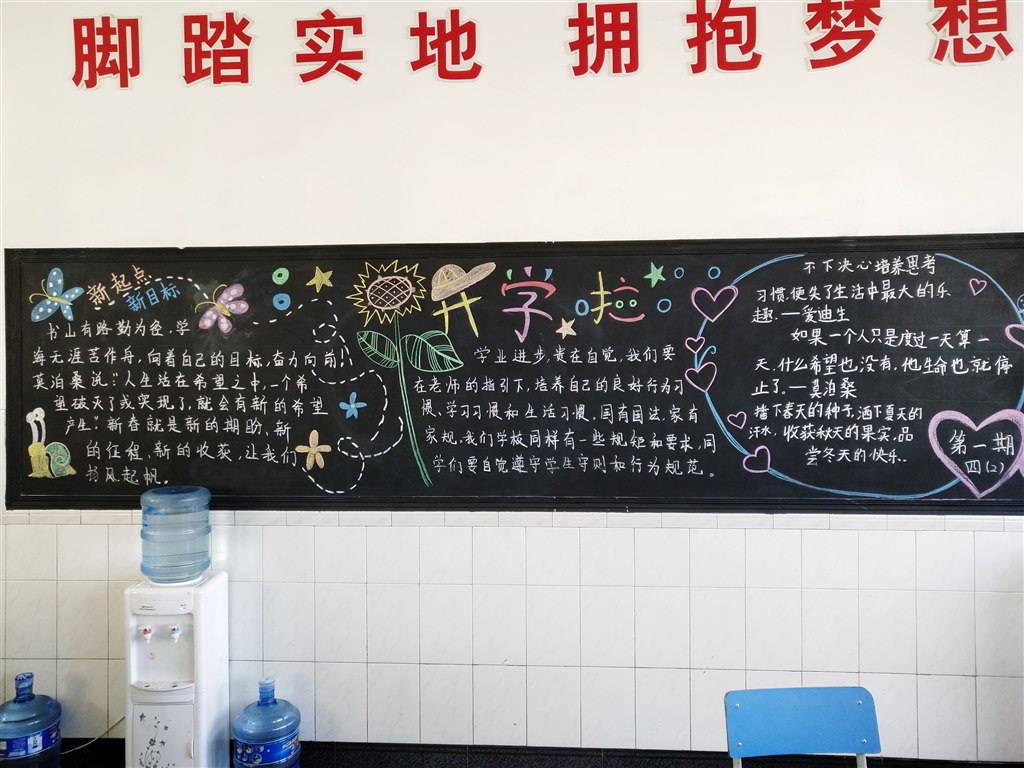 脚踏实地 拥抱梦想
新起点
新目标
书山有路勤为径,学
海无涯苦作舟,向着自己的目标,奋力向前,
莫泊桑说:"人生活在希望之中,一个希
望破灭了或实现了,就会有新的希望
产生。新春就是新的期盼,新
的征程,新的收获,让我们
扬风起帆。
开学啦
学业进步,贵在自觉,我们要
在老师的指引下,培养自己的良好行为习
惯、学习习惯和生活习惯。国有国法,家有
家规,我们学校同样有一些规矩和要求,同
学们要自觉遵守学生守则和行为规范。
不下决心培养思考
习惯,便失了生活中最大的乐
趣.—爱迪生
如果一个人只是度过一天算一
天,什么希望也没有,他生命也就停
止了.—莫泊桑
播下春天的种子,洒下夏天的
汗水,收获秋天的果实,品
尝冬天的快乐.
第一期
四(2)